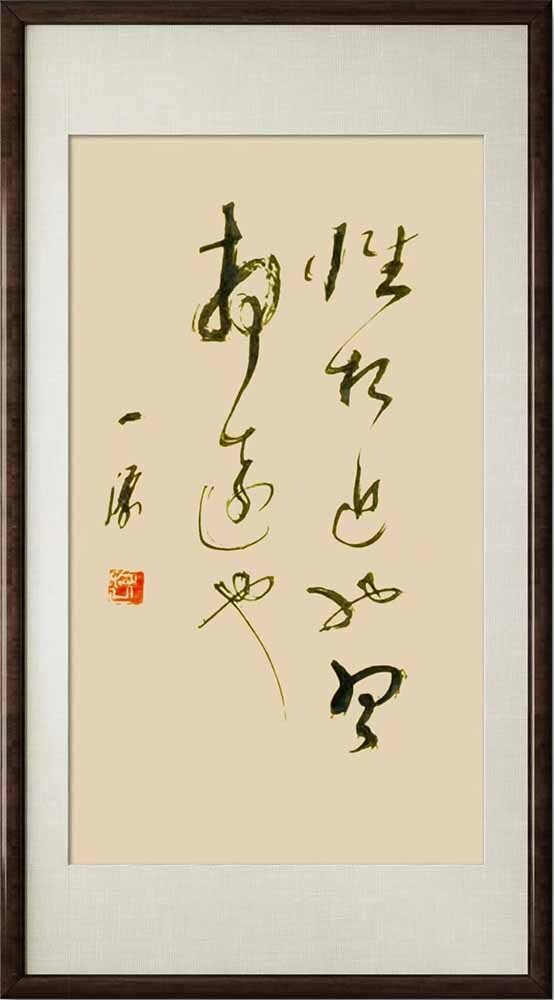 性相近也習
相遠也
一源